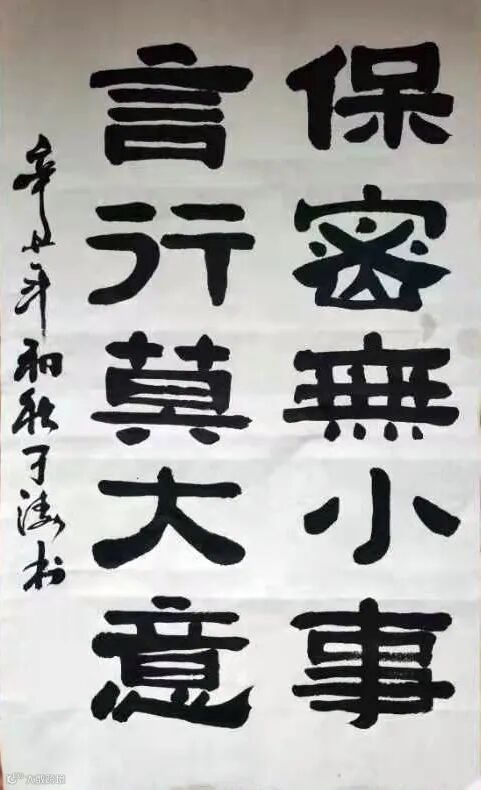 保密無小事
言行莫大意
辛丑年初秋于